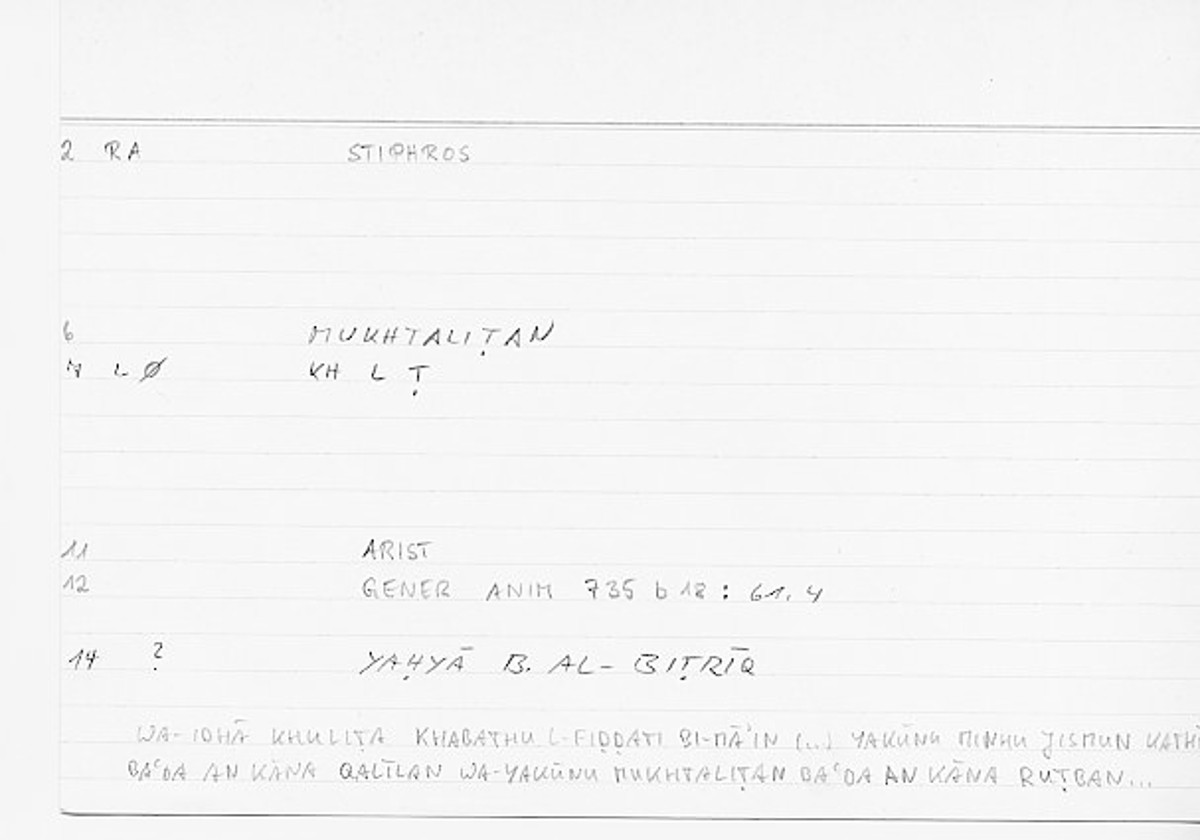 2 RA STIPHROS
6 MUKHTALIṬAN
7 L Ø KH L Ṭ
11 ARIST
12 GENER ANIM 735 b 18 : 61.4
14 ? YAḤYĀ B. AL-BIṬRĪQ
WA-IDHĀ KHULIṬA KHABATHU L-FIḌḌATI BI-MĀʾIN (..) YAKŪNU MINHU JISMUN KATHĪ
BAʿDA AN KĀNA QALĪLAN WA-YAKŪNU MUKHTALIṬAN BAʿDA AN KĀNA RUṬBAN...